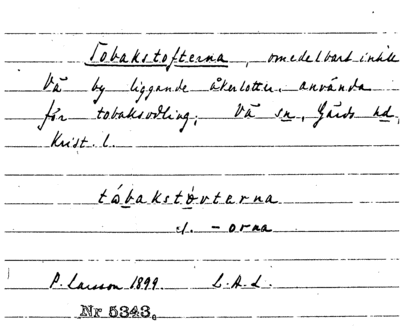 Tobakstofterna, omedelbart intill
Vä by liggande åkerlotter, använda
för tobaksodling. Vä sn, Gärds hd,
Krist. l.
tóbakstòvterna
l. -orna
P. Larsson 1899. L.A.L.
Nr 5343.